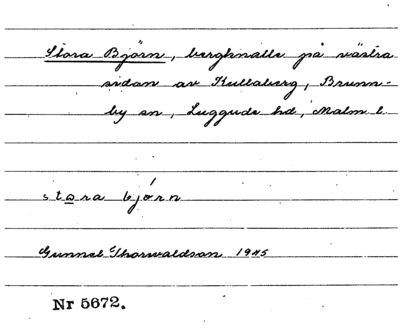 Stora Björn, bergknalle på västra
sidan av Kullaberg, Brunn-
by sn, Luggude hd, Malm. l.
stora bjǿrn
Gunnel Thorwaldson 1945
Nr 5672.